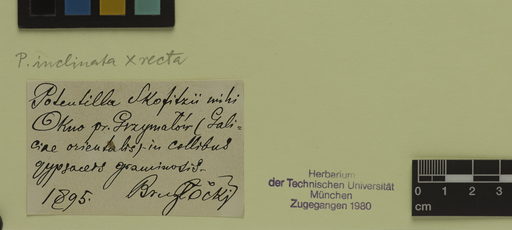 P. inclinata x recta
Potentilla Skofitzii mihi
Okno pr. Grzymałów (Gali-
ciae orientalis) in collibus
gypsaceis graminosis.
1895.
Herbarium
der Technischen Universität
München
Zugegangen 1980
0 1 2 3
cm